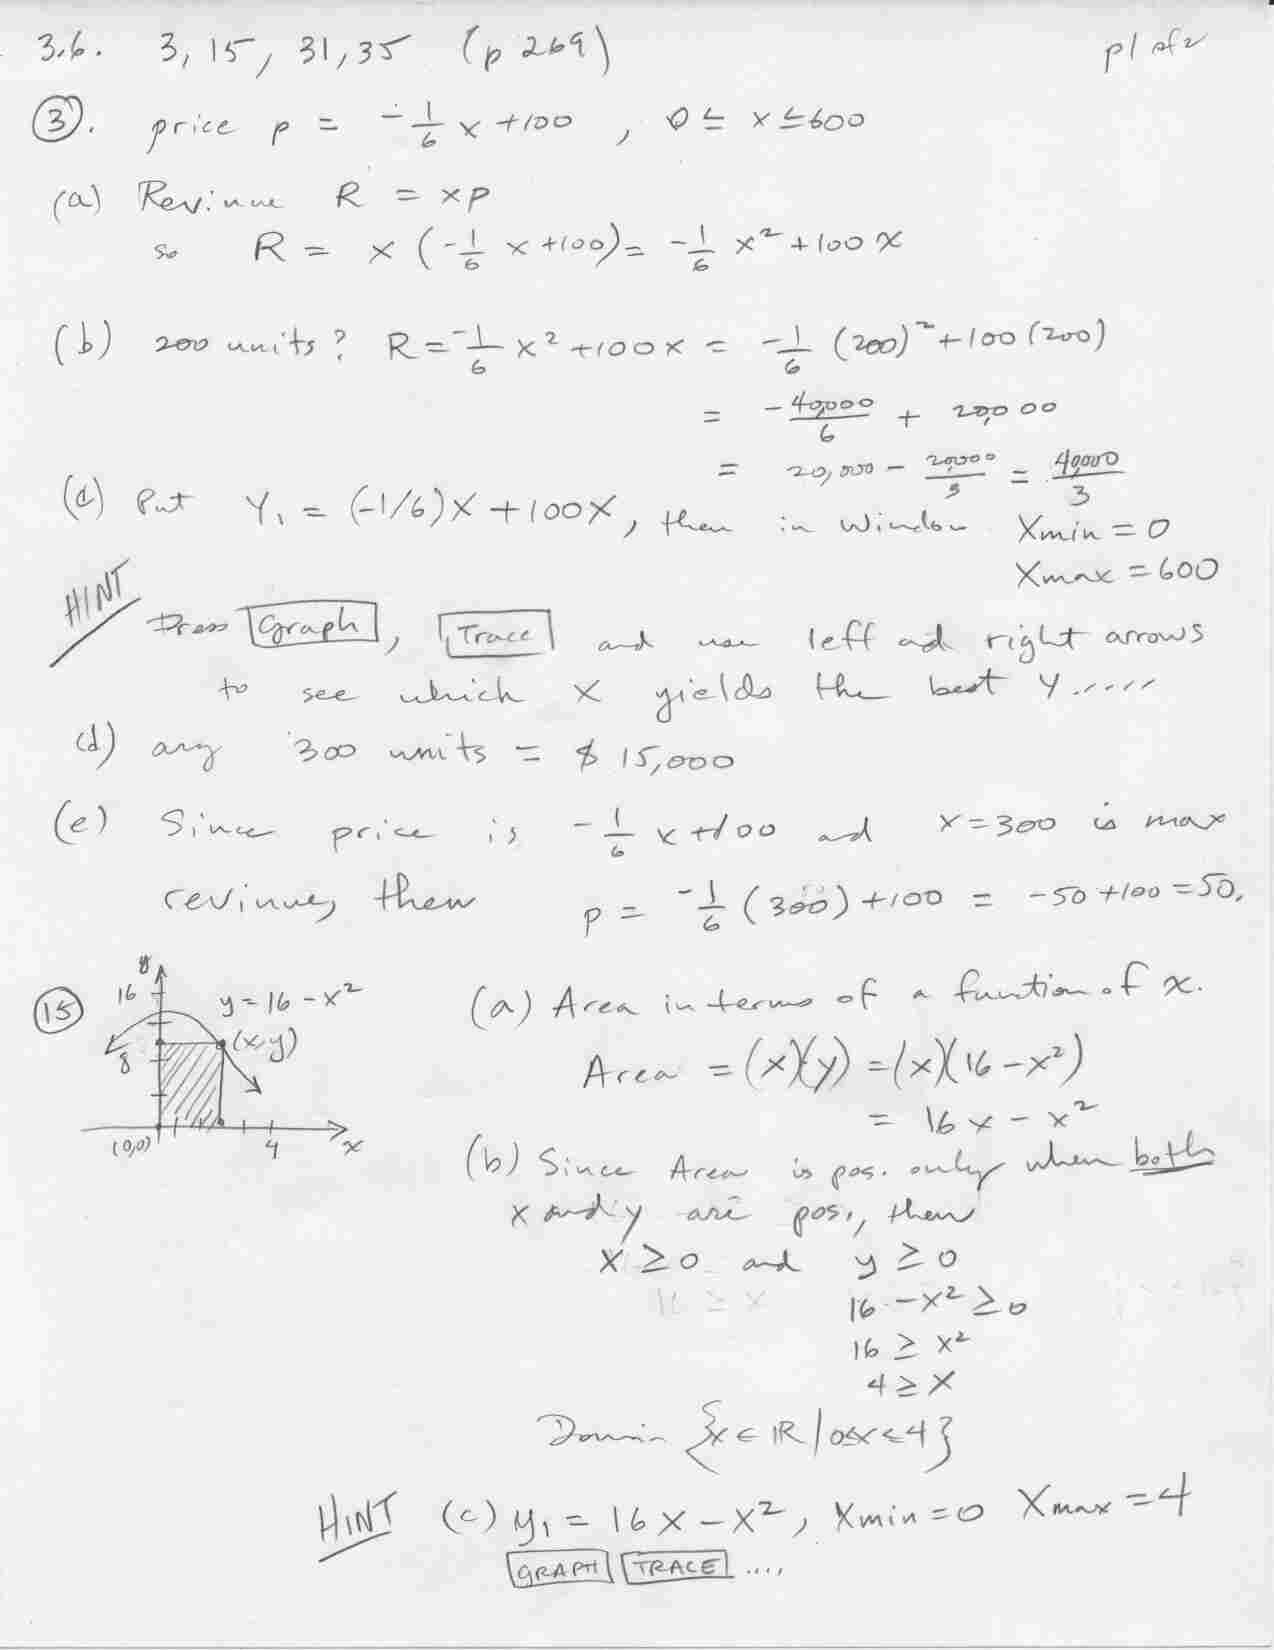 3.6. 3, 15, 31, 35 (p 269) p1 of 2
③. price p = -1/6 x +100 , 0 ≤ x ≤ 600
(a) Revinue R = xp
so R = x (-1/6 x +100) = -1/6 x² +100 x
(b) 200 units? R = -1/6 x² +100x = -1/6 (200)² +100 (200)
= -40,000/6 + 20,000
= 20,000 - 20,000/3 = 40,000/3
(c) Put Y₁ = (-1/6)X +100X, then in Window Xmin = 0
Xmax = 600
HINT
Press Graph, Trace and use left ad right arrows
to see which X yields the best Y.....
(d) ang 300 units = $ 15,000
(e) Since price is -1/6 x +100 ad x = 300 is max
revinue, then p = -1/6 (300) +100 = -50 +100 = 50.
⑮ y
16
y = 16 - x²
(x,y)
8
(0,0) 4 x
(a) Area in terms of a function of x.
Area = (x)(y) = (x)(16 - x²)
= 16x - x²
(b) Since Area is pos. only when both
x and y are pos., then
x ≥ 0 and y ≥ 0
16 - x² ≥ 0
16 ≥ x²
4 ≥ X
Domain {x ∈ ℝ | 0≤x≤4}
HINT (c) y₁ = 16x - x², Xmin = 0 Xmax = 4
GRAPH TRACE ....